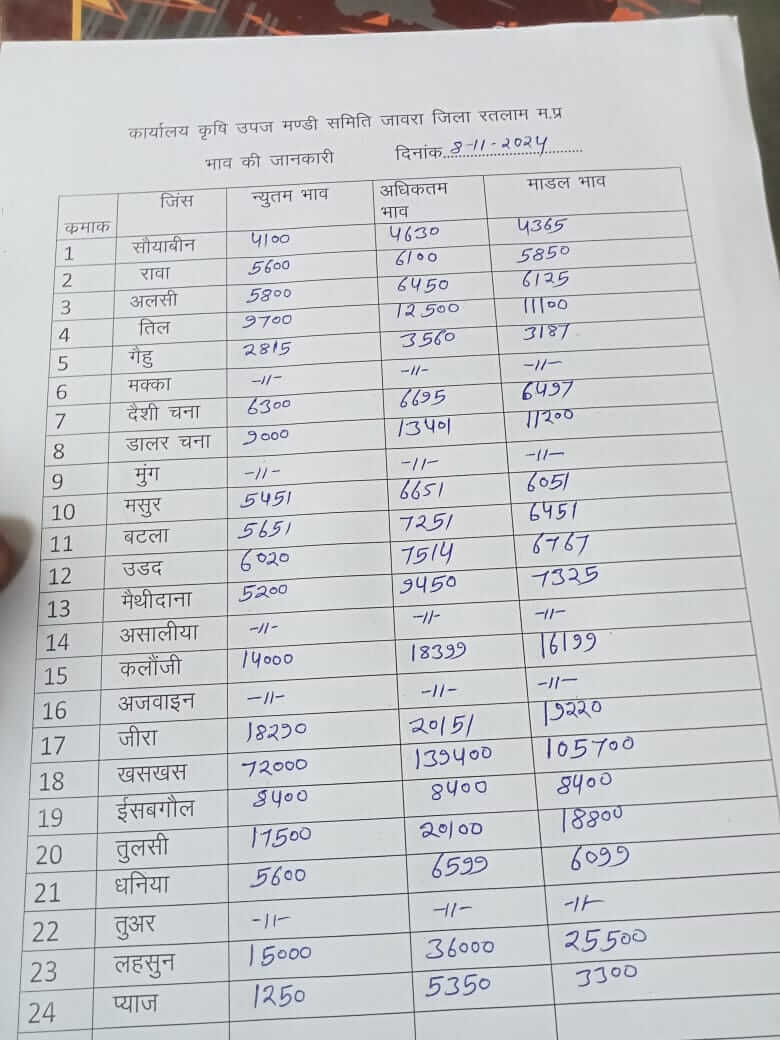 कार्यालय कृषि उपज मण्डी समिति जावरा जिला रतलाम म.प्र
भाव की जानकारी दिनांक 8-11-2024
कमाक जिंस न्युतम भाव अधिकतम भाव माडल भाव
1 सौयाबीन 4100 4630 4365
2 रावा 5600 6100 5850
3 अलसी 5800 6450 6125
4 तिल 9700 12500 11100
5 गैहु 2815 3560 3187
6 मक्का -11- -11- -11-
7 दैशी चना 6300 6695 6497
8 डालर चना 9000 13401 11200
9 मुंग -11- -11- -11-
10 मसुर 5451 6651 6051
11 बटला 5651 7251 6451
12 उडद 6020 7514 6767
13 मैथीदाना 5200 9450 7325
14 असालीया -11- -11- -11-
15 कलौंजी 14000 18399 16199
16 अजवाइन -11- -11- -11-
17 जीरा 18290 20151 19220
18 खसखस 72000 139400 105700
19 ईसबगौल 8400 8400 8400
20 तुलसी 17500 20100 18800
21 धनिया 5600 6599 6099
22 तुअर -11- -11- -11-
23 लहसुन 15000 36000 25500
24 प्याज 1250 5350 3300